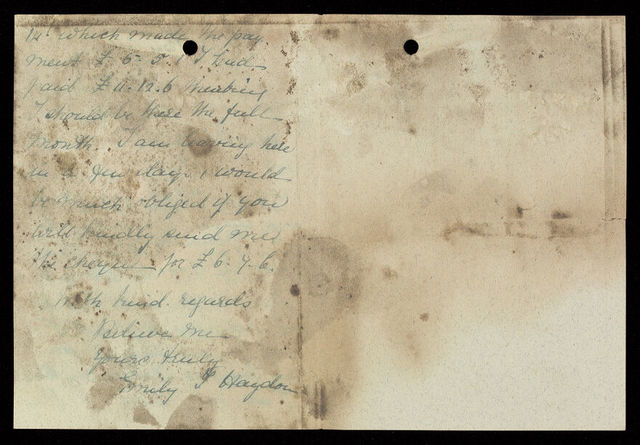 14. which made the pay
ment £ 5-5-1 I had
paid £ 11-12.6 thinking
I should be here the full
month. I am leaving here
in a few days. I would
be much obliged if you
will kindly send me
the cheque for £ 6-7-6.
With kind regards
Believe me
Yours truly
Emily Haydon